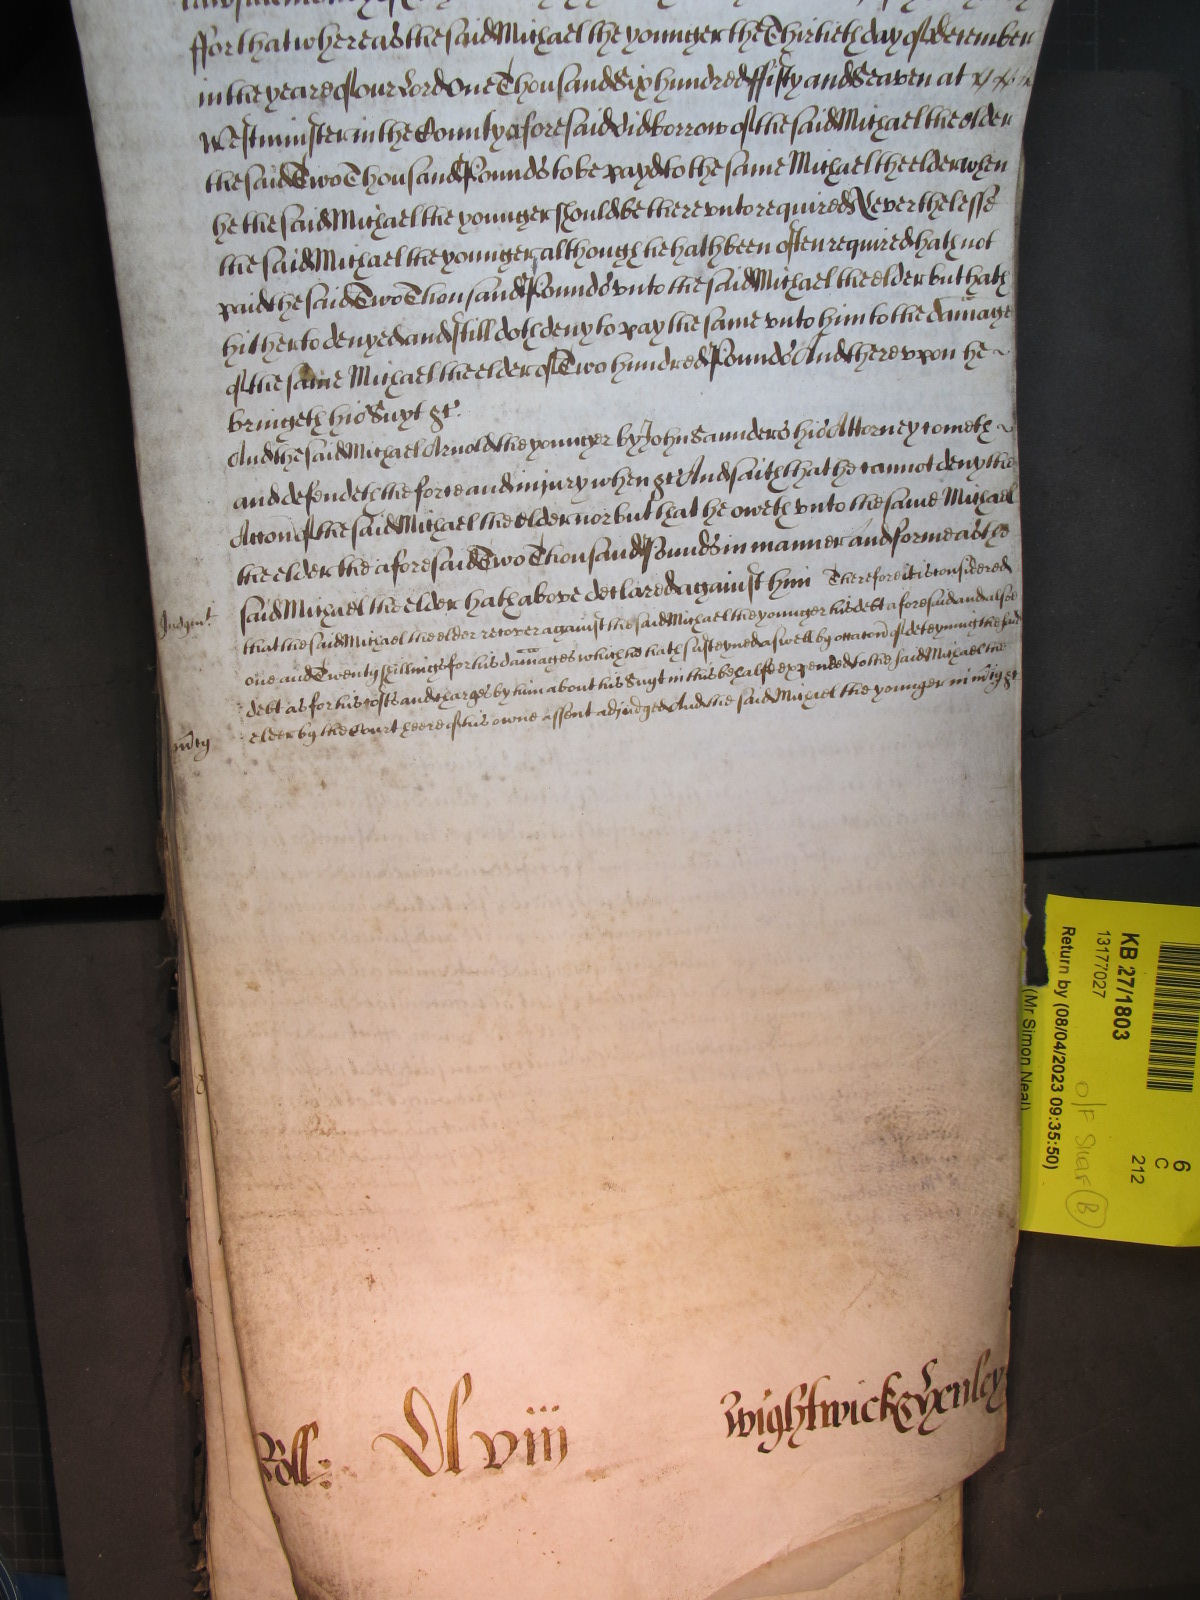 ffor that whereas the said Michael the younger the Thirtieth day of december
in the yeare of our Lord One Thousand Six hundred ffifty and Seaven at
Westminster in the County aforesaid did borrow of the said Michael the elder
the said Two Thousand Pounds to be payd to the same Michael the elder when
he the said Michael the younger should be there vnto required Neverthelesse
the said Michael the younger although he hath been often required hath not
paid the said Two Thousand Pounds vnto the said Michael the elder but hath
hitherto denyed and still doth deny to pay the same vnto him to the damage
of the same Michael the elder of Two hundred Pounds And there vpon he
bringeth his Suyt &c.
And the said Michael Arnold the younger by John Saunders his Attorney cometh
and defendeth the force and injury when &c And saith that he cannot deny the
Accon of the said Michael the elder nor but that he oweth vnto the same Michael
the elder the aforesaid Two Thousand Pounds in manner and forme as the
said Michael the elder hath above declared against him Therefore it is considered
Judgmt.
that the said Michael the elder recover against the said Michael the younger his debt aforesaid and alsoe
one and Twenty shillings for his damages which he hath susteyned aswell by occacon of deteyning the said
debt as for his costs and charges by him about his Suyt in this behalfe expended to the said Michael the
elder by the Court heere of his owne assent adjudged And the said Michael the younger in mcy &c
mcy
Roll: Clviii
Wightwick & Henley
KB 27/1803
13177027
Return by (08/04/2023 09:35:50)
(Mr Simon Neal)
6
C
212
O/F Shelf B